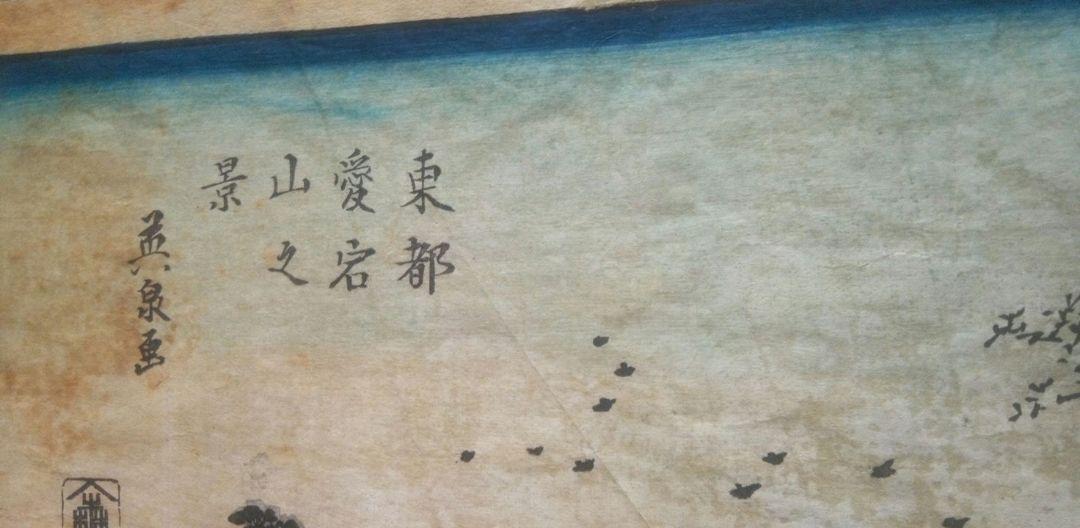 東都
愛宕
山之
景
英泉画